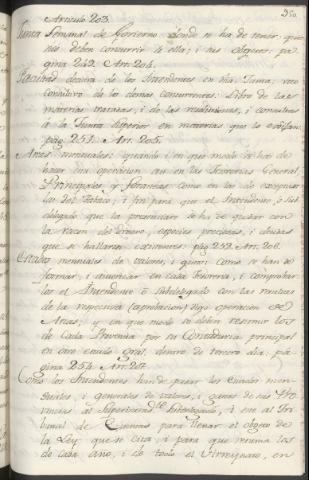 Articulo 203.
Junta Semanal de Govierno: donde se ha de tener: que-
nes deben concurrir á ella; i sus objetos: pa-
gina 249. Art. 204.
decisiva de los Intendentes en dha. Junta; voto
consultivo de los demas concurrentes: Libro de las
materias tratadas, i de las i consultas
á la Junta Superior en materias que lo exijan:
pag. 251. Art. 205.
Arcas mensuales: quando i en que modo se han de
hacer esta operacion asi en las Tesorerias General,
Principales y Foraneas como en las de
los del Tabaco, i fin para que el Intendente, ó Sub-
delegado que la presenciare se ha de quedar con
la razon del dinero, especies preciosas, i demas
que se hallaren existentes: pag. 252. Art. 206.
Estados mensales de valores, i gastos: como se han de
formar, i autorizar en cada Tesoreria, i comprobar
los el Intendente ó Subdelegado con las resultas
de la respectiva operacion de
Arcas; y en que modo se deben resumir los
de Cada Provincia por su Contaduria principal
en otro estado gral. dentro de tercero dia: pa-
gina 254. Art. 207.
Como los Intendentes han de pasar los Estados men-
suales, i generales de valores, i gastos de sus Pro-
vincias al Superintend.te Subdelegado, i este al Tri-
bunal de Cuentas para llenar el objeto de
la Ley que se Cita, i para que resuma los
de cada año, i de todo el Virreynato, en